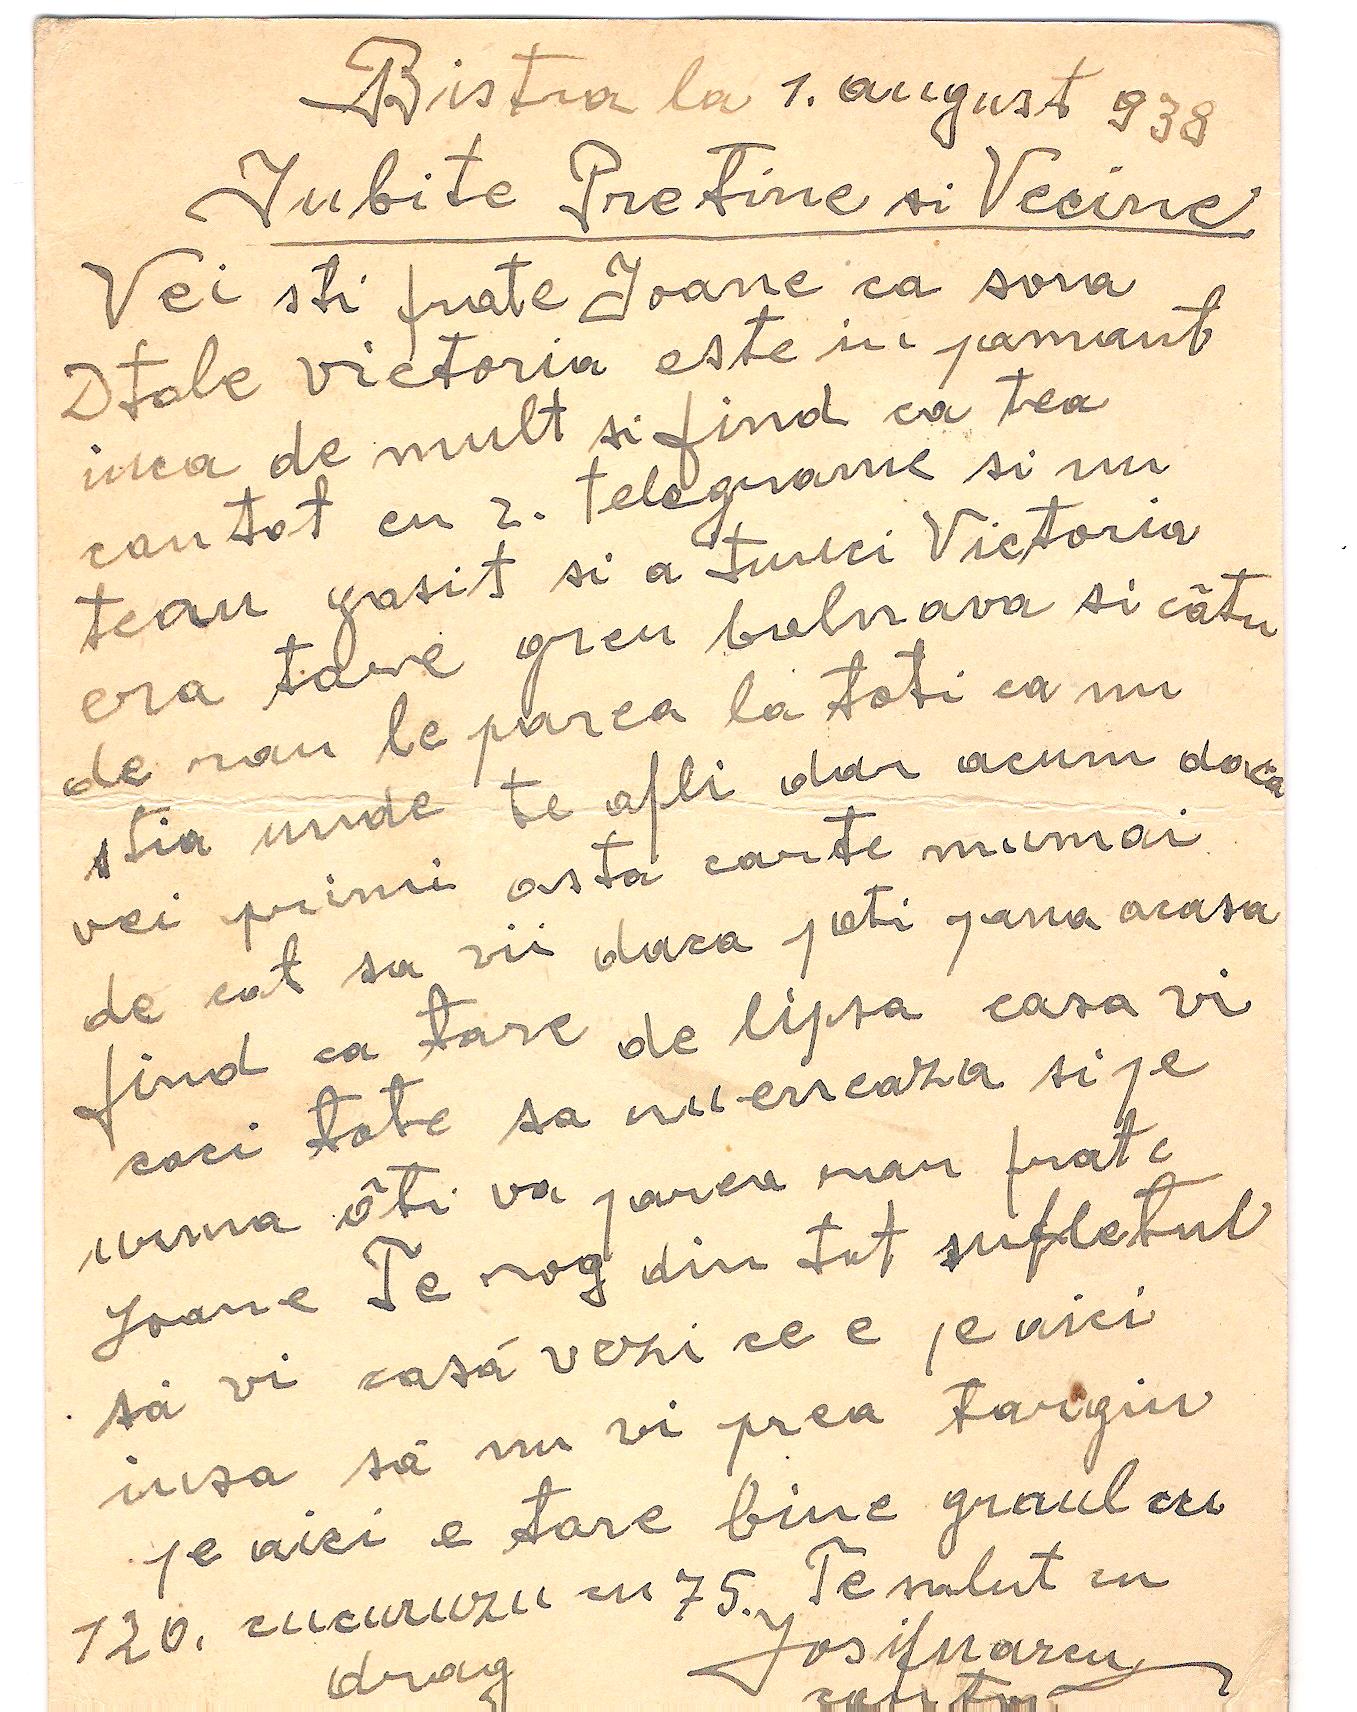 Bistra la 1. august 938
Iubite Pretine si Vecine
Vei sti frate Ioane ca sora
Dtale Victoria este in pamant
inca de mult si find ca tea
cautat cu 2. telegrame si nu
teau gasit si a tunci Victoria
era tare greu bolnava si câtu
de rau le parea la toti ca nu
stia unde te afli dar acum daca
vei primi asta carte mumai
de cat sa vii daca poti pana acasa
find ca tare de lipsa casa vi
caci tote sa
urma ôti va parea rau frate
Ioane Te rog din tot sufletul
sá vi casá vezi ce e pe aici
insa sá nu vi prea targiu
pe aici e tare bine graul cu
120. cucuruzu cu 75. Te salut cu
drag Iosif